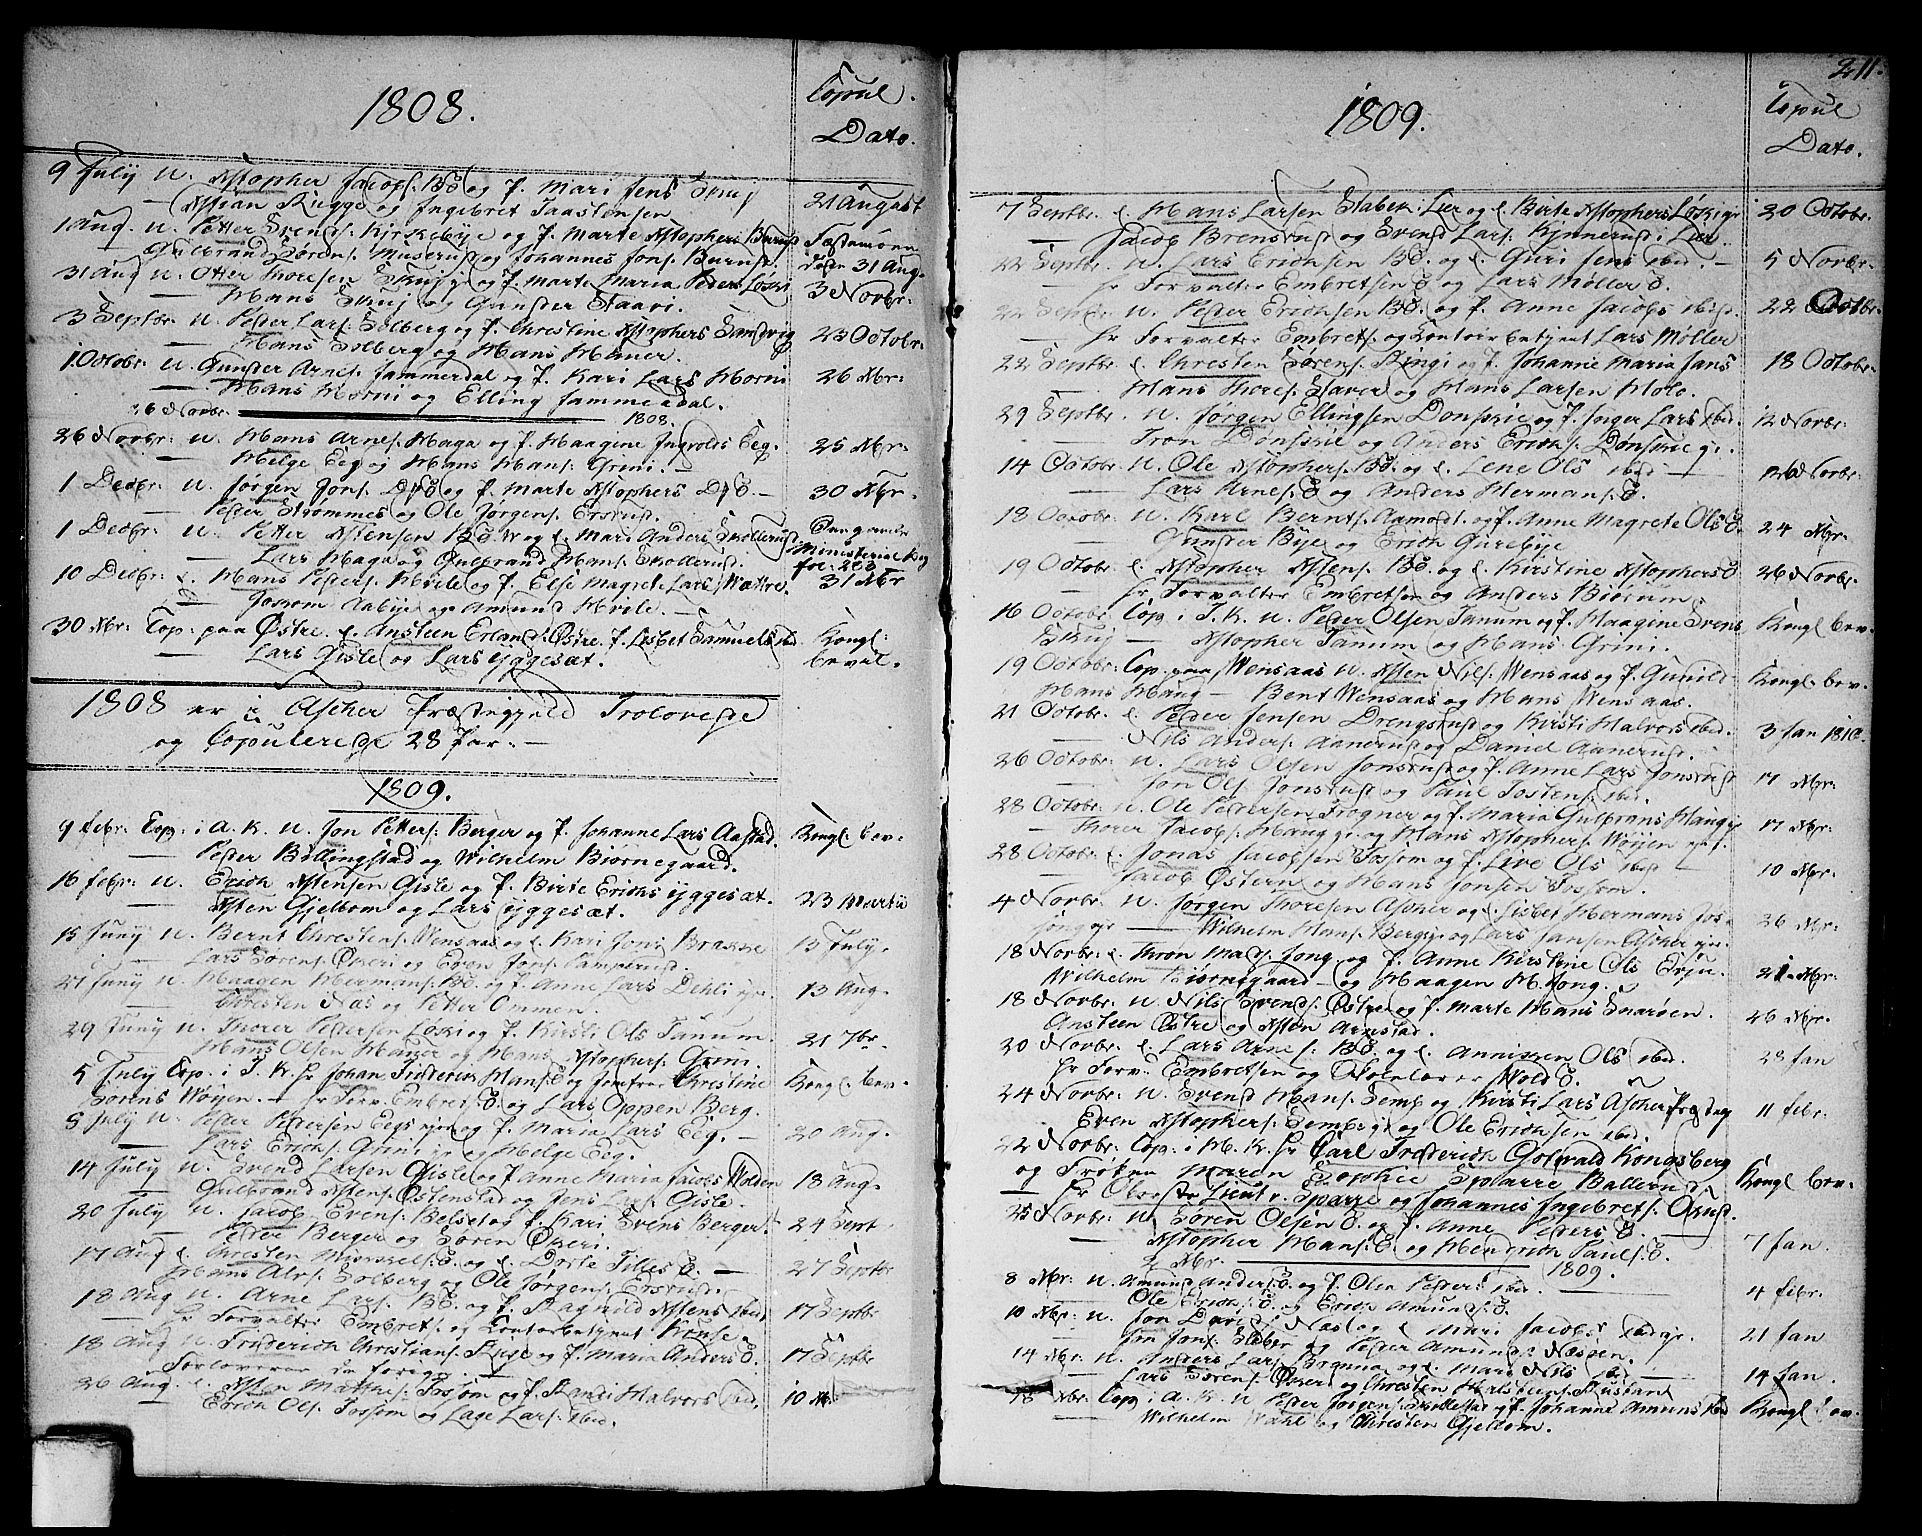 1808.
Copul.
Dato.
9 Julÿ u. Xstopher Jacobs: BÖ og P. Mari Jens Skuj
Kristian Rugge og Ingebret Taastensen
21 August
1 Aug. u. Petter Svends: Kirkebÿe og P. Marte Xstophers Burud
Gulbrand Sörens: Muserud og Johannes Jons: Burud.
31 Aug u. Otter Thoresen Skuj og P. Marte Maria Peders Löski
31 Aug.
Hans Skuj og Gunder Staavi.
3 Novbr:
3 Septbr. u. Peder Lars: Solberg og P. Christine Xstophers Sandvig
Hans Solberg og Hans Hauer.
23 Octobr:
1 Octobr: u. Gunder Arnes: Jammerdal og P. Kari Lars Horni
Hans Horni og Elling Jammerdal.
26 Xbr:
26 Novbr:
1808.
26 Novbr: u. Hans Arnes: Haga og P. Haagine Ingvolds Eeg.
Helge Eeg og Hans Hans: Grini.
25 Xbr:
1 Decbr. u. Jörgen Jons: og P. Marte Xstophers
Peder Strommes og Ole Jörgens: Ersrud.
30 Xbr.
1 Decbr: u. Petter Xstensen BÖ og e. Mari Anders Skollerud
Lars Haga og Gulbrand Hans: Skollerud.
Den gamle
Ministerial Bog
10 Decbr: e. Hans Peders: Hvile og P. Else Magrete Lars Wættre.
Joxom Aabÿe og Amund Hvile.
31 Xbr
30 Xbr: Cop: paa Östre. e. Ansteen Erlands: Östre. P. Lisbet Samuels
Lars Gisle og Lars ijggesæt.
Kongl:
beval.
1808 er i Ascher Præstegjeld Trolovede
og Copulerede 28 Par.
1809.
9 febr: Cop: i A. K. u. Jon Petters: Berger og P. Johanne Lars Aastad.
Peder Böllingstad og Wilhelm Biørnegaard.
Kongl bev.
16 febr: u. Erich Xstensen Gisle og P. Birte Erichs ijggesæt.
Xsten Gjellom og Lars ijggesæt.
23 Martii
15 Junÿ u. Bernt Christens: Wensaas og e. Kari Jons Brakke
Lars Sörens: Ökeri og Even Jons:
13 Julÿ.
21 Junÿ u. Haagen Hermans: BÖ. og P. Anne Lars Dehli
Christen Næs og Petter Ommen.
13 Aug.
29 Junÿ u. Thorer Pedersen Löski og P. Kirsti Ols Tanum
Hans Olsen Hauger og Hans Xstophers: Grini.
21 7br.
5 Julÿ Cop. i T. K. Hr Johan Friderich Hans: og Jomfrue Christine
Sörens Wøÿen. Hr Forv. Embrets: Ö og Lars Oppen Berg.
Kongl: bev.
5 Julÿ u. Peder Pedersen Eegs og P. Maria Lars Eeg.
Lars Erichs: Grini og Helge Eeg.
20 Aug.
14 Julÿ u. Svend Larsen Gisle og P Anne Maria Jacobs Wolden
Gulbrand Xstens: Östenstad og Jens Lars: Gisle.
18 Aug.
20 Julÿ u. Jacob Evens: Belset og P. Kari Svens Berger.
Peder Berger og Sören Ökeri.
24 Sept
17 Aug e. Christen Mickels: Ö. og e. Dorte Tilles Ö.
Hans Alvs: Solberg og Ole Jörgens: Ersrud.
27 Septbr
18 Aug u. Arne Lars: BÖ. og P. Ragnild Xstens ibid
Hr Forvalter Embrets: og Contorbetjent Kruse.
17 Septbr
18 Aug u. Friderich Christians: og P. Maria Anders Ö.
Forlovere de forige.
17 Septbr
26 Aug. e. Xsten Matthi: Fossom og P. Randi Halvors ibid.
Erich Ols: Fossom og Lage Lars: ibid.
10
1809.
211.
Copul
Dato.
7 Septbr. e. Hans Larsen Stabek Lier og e. Birte Xstophers Löski
Jacob Brensrud og Svend Lars: Kinnerud i Lier.
20 Octobr.
22 Septbr. u. Lars Erichsen BÖ. og e. Guri Jens ibid.
Hr Forvalter Embretsen Ö og Lars Møller Ö.
5 Novbr.
22 Septbr. u. Peder Erichsen BÖ. og P. Anne Jacobs ibid.
Hr Forvalter Embrets: og Contoirbetjent Lars Møller
22 Octbr.
22 Septbr e. Christen Sörens: Ringi og P. Johanne Maria Jans
Hans Thores: Staver og Hans Larsen Holo.
18 Octobr.
29 Septbr. u. Jörgen Ellingsen Donskie og P. Inger Lars ibid.
Tron Donskie og Anders Erichs: Donskie
12 Novbr.
14 Octobr. u. Ole Xstophers: BÖ. og e. Lene Ols ibid.
Lars Arnes: Ö og Anders Hermans: Ö.
26 Novbr:
18 Octobr: u. Karl Bernts: Aamodt. og P. Anne Magrete Ols Ö
Gunder Bÿe og Erich Gurebÿe
24 Xbr:
19 Octobr. e. Xstopher Xstens: BÖ. og e. Kirstine Xstophers Ö
Hr Forvalter Embretsen og Anders Biørum.
26 Novbr.
16 Octobr: Cop: i T. K. u. Peder Olsen Tanum og P. Haagine Svens
Skuj Xstopher Tanum og Hans Grini.
Kongl bev.
19 Octobr: Cop. paa Wensaas u. Xsten Nils: Wensaas og P. Gunild
Hans Haug Bent Wensaas og Hans Wensaas.
Kongl. bev.
21 Octobr. e. Peder Jensen Drengsrud og Kirsti Halvors ibid.
Nils Anders: Aanerud og Daniel Aanerud.
3 Jan 1810.
26 Octobr: u. Lars Olsen Jonsrud og P. Anne Lars Jonsrud
Jon Ols: Jonsrud og Paul Jostens: ibid.
17 Xbr:
28 Octobr. u. Ole Pedersen Frogner og P. Maria Gulbrans Haug
Thorer Jacobs: Haug og Hans Xstophers: Wøÿen
17 Xbr:
28 Octobr. e. Jonas Jacobsen Fossom og P. Live Ols ibid
Jacob Østern og Hans Jonsen Fossom.
10 Xbr:
4 Novbr: u. Jörgen Thoresen Ascher og e. Lisbet Hermans
Wilhelm Hans: Berg og Lars Jansen Ascher
26 Xbr:
18 Novbr: e. Thron Mads: Jong. og P. Anne Kirstine Ols Evju
Wilhelm Biørnegaard og Haagen H. Jong.
21 Xbr:
18 Novbr: u. Nils Svends: Østre og P. Marte Hans Snarøen.
Ansteen Østre og Xsten Arnestad.
26 Xbr.
20 Novbr. e. Lars Arnes: BÖ og e. Annicken Ols ibid.
Hr Forv: Embretsen og Skolelærer Wold Ö.
28 Jan
24 Novbr: u. Svend Hans: Semb og Kirsti Lars Ascher Præsteg
Even Xstophers: Semb og Ole Erichsen ibid.
11 febr.
22 Novbr: Cop: i H. K. Hr Carl Friderich Gotvald Kongsberg
og Frøken Maren Sophie Sparre Ballerud
Kongl bev.
Hr Oberste Lieut v. Sparre og Johannes Ingebrets: Ørud.
25 Novbr: u. Sören Olsen Ö. og P. Anne Peders Ö.
Xstopher Hans: Ö. og Hendrich Pauls: Ö.
7 Jan.
2 Xbr.
1809.
8 Xbr: u. Amund Anders: Ö. og P. Olia Peders ibid.
Ole Erichs: Ö og Erich Amunds: Ö.
4 febr.
10 Xbr: u. Jon Davids: Næs og e. Mari Jacobs ibid
Jon Jons: Staber og Peder Amunds: Næsøen.
21 Jan
14 Xbr: u. Anders Lars: Brenna og e. Mari Nils ibid
Lars Sörens: Ökeri og Christen Halsteens: Rustand
14 Jan.
18 Xbr: Cop: i A. K. u Peder Jörgens: og P. Johanne Amuns ibid
Wilhelm Wahl og Christen Gjellom.
Kongl bev.